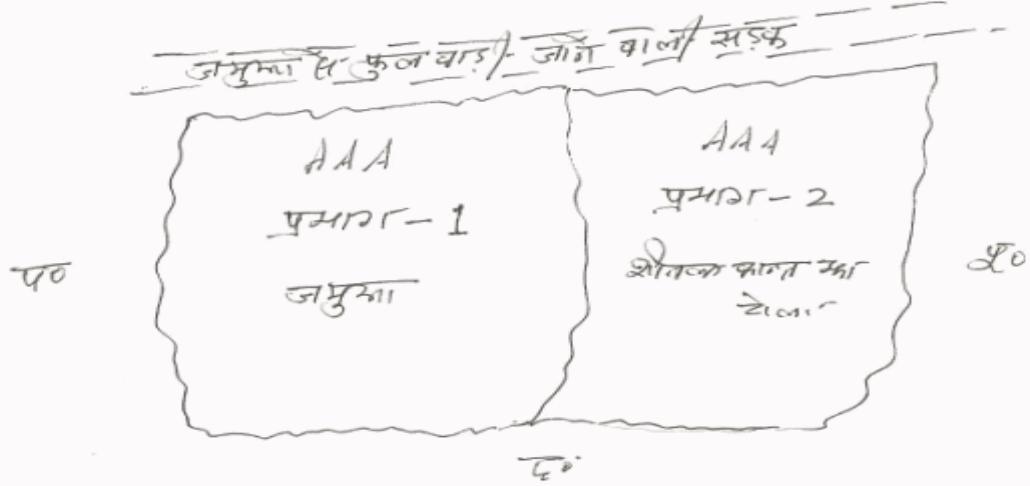 जमुआ से फुलवाड़ी जाने वाली सड़क
AAA
प्रभाग - 1
जमुआ
AAA
प्रभाग - 2
कान्त झा
टोला
प०
पू०
द०